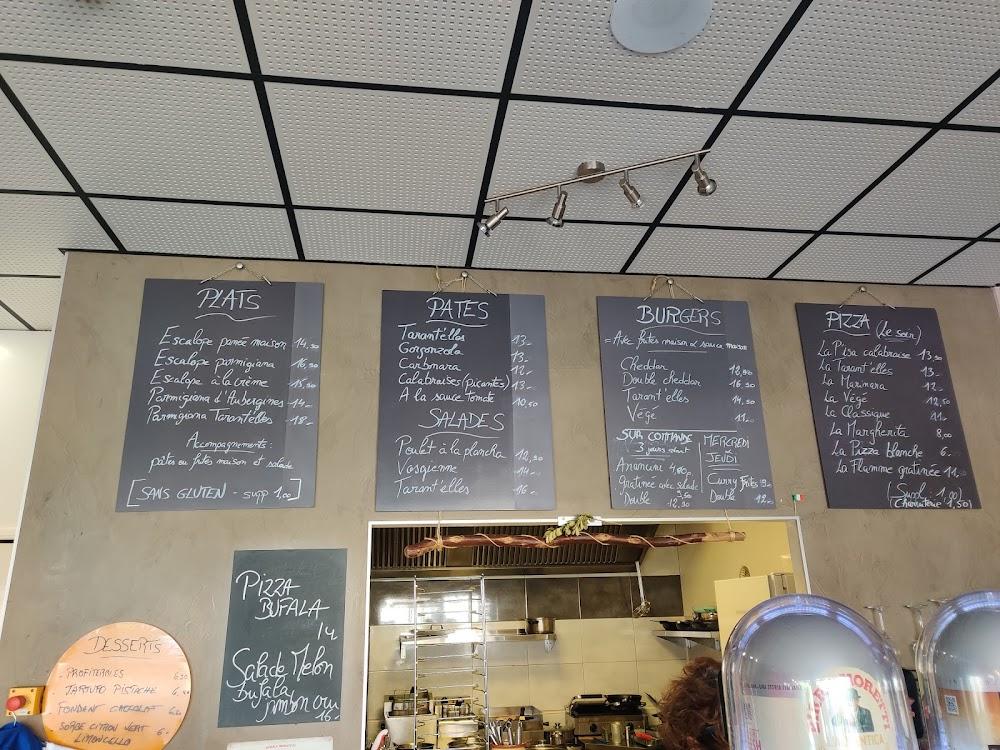 PLATS
Escalope panée maison 14,50
Escalope parmigiana 16,50
Escalope à la crème 15,50
Parmigiana d'Aubergines 14.-
Parmigiana Tarant'elles 18.-
Accompagnements:
pâtes ou frites maison et salade
[SANS GLUTEN - supp 1,00]
PATES
Tarant'elles 13.-
Gorgonzola 13.-
Carbonara 12.-
Calabraises (picantes) 13.-
A la sauce Tomate 10,50
SALADES
Poulet à la plancha 12,50
Vosgienne 14.-
Tarant'elles 16.-
BURGERS
= Avec frites maison & sauce maison
Cheddar 12,50
Double cheddar 16,50
Tarant'elles 14,50
Végé 11.-
SUR COMMANDE
3 jours avant
Ananum 4,80
Gratinée avec salade 9,50
Double 12,50
MERCREDI
JEUDI
Curry Frites 9.-
Double 12.-
PIZZA (Le soir)
La Pisa calabraise 13,50
La Tarant'elles 13.-
La Marinara 12.-
La Végé 12,50
La Classique 11.-
La Margherita 8,00
La Pizza blanche 6.-
La Flamme gratinée 11.-
(Suppl: 1,00)
(Charcuterie 1,50)
PIZZA
BUFALA
14
Salade Melon
bufala
jambon cru
16.-
DESSERTS
- PROFITEROLES 6,50
- TARTUFO PISTACHE
- FONDANT CHOCOLAT
- SORBE CITRON VERT
LIMONCELLO 6.-
MORETTI